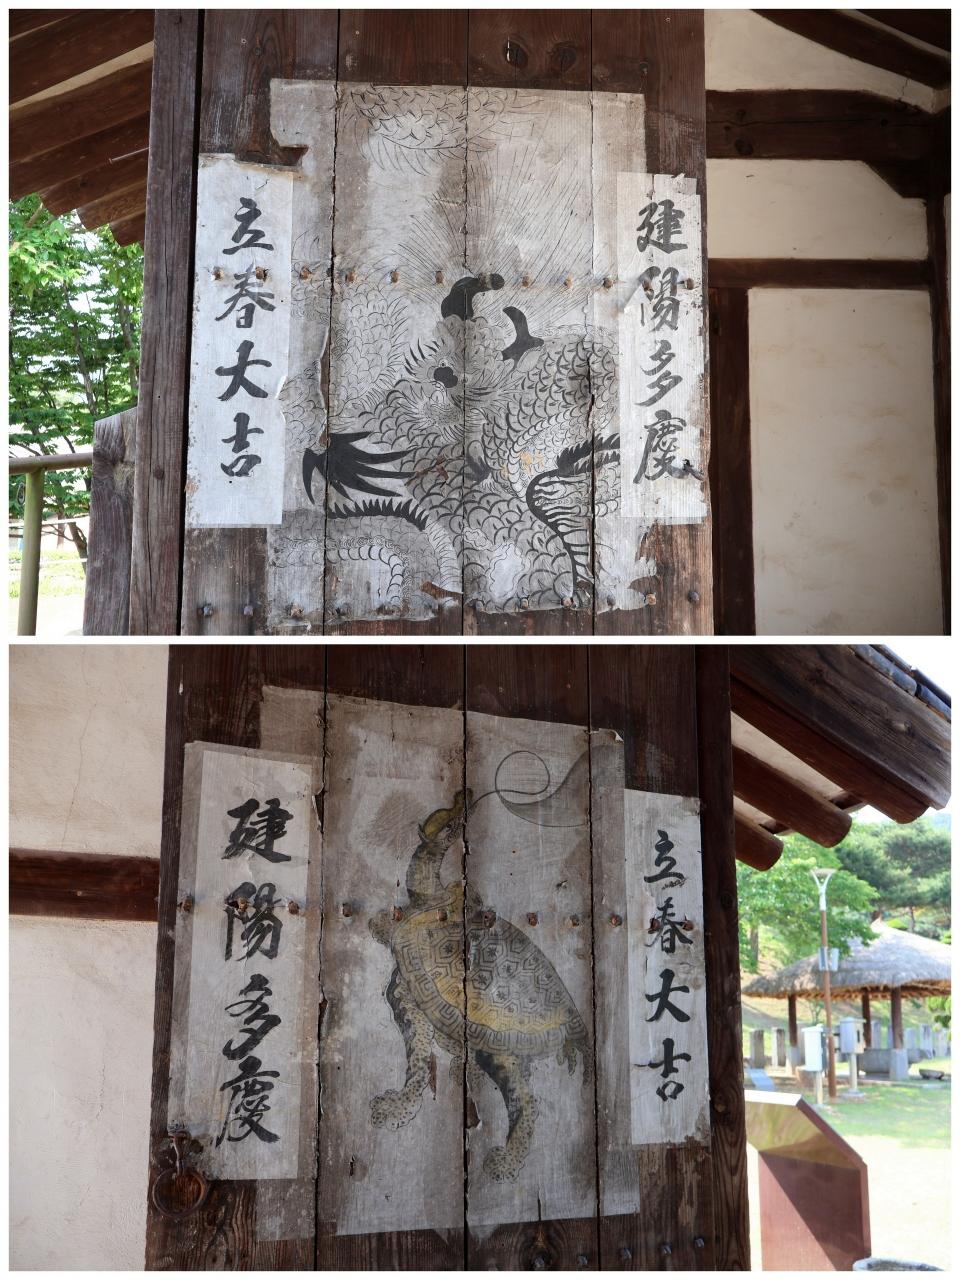 立春大吉
建陽多慶
建陽多慶
立春大吉